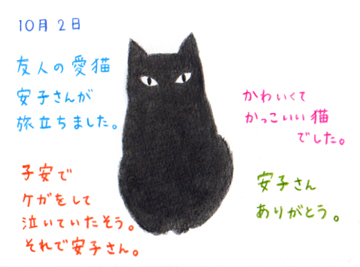 10月2日
友人の愛猫
安子さんが
旅立ちました。
かわいくて
かっこいい猫
でした。
子安で
ケガをして
泣いていたそう。
それで安子さん。
安子さん
ありがとう。